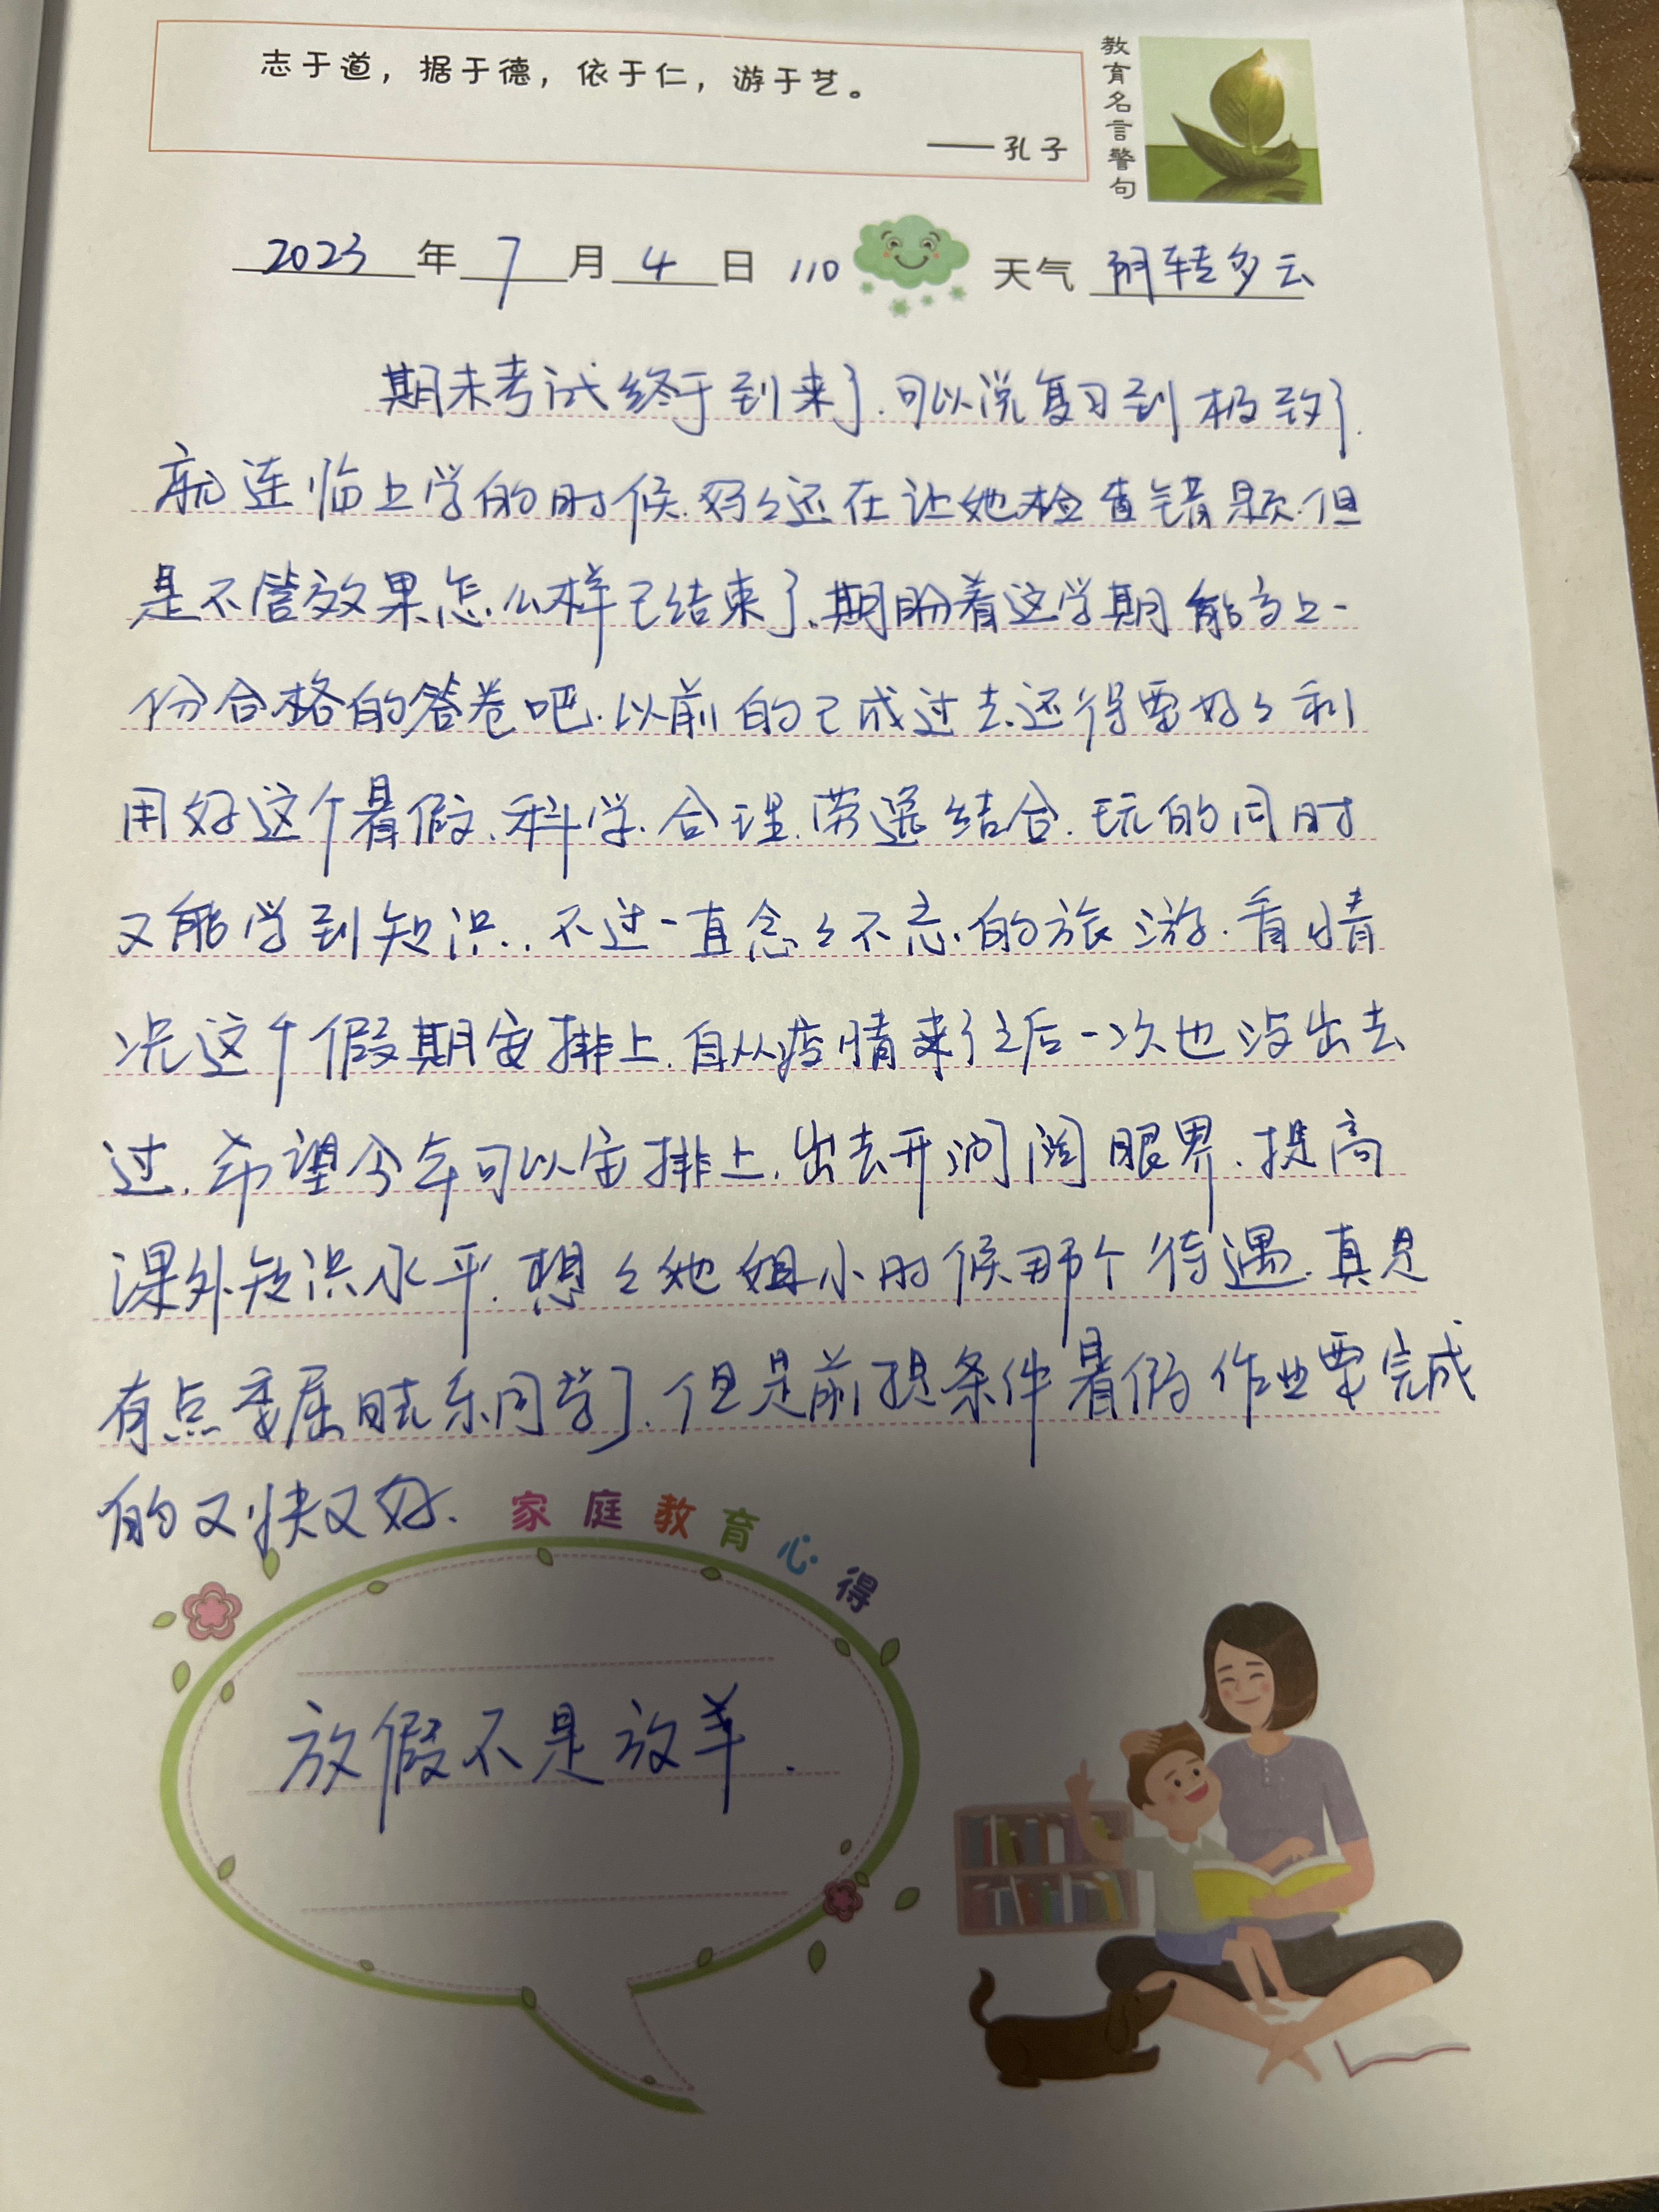 志于道，据于德，依于仁，游于艺。
——孔子
教育名言警句
2023年7月4日 110 天气 阴转多云
期末考试终于到来了.可以说复习到极致了.
就连临上学的时候.妈々还在让她检查错题.但
是不管效果怎么样已结束了.期盼着这学期能交上一
份合格的答卷吧.以前的已成过去.还得要好々利
用好这个暑假.科学.合理.劳逸结合.玩的同时
又能学到知识..不过一直念々不忘的旅游.看情
况这个假期安排上.自从疫情来了之后一次也没出去
过.希望今年可以安排上.出去开阔阔眼界.提高
课外知识水平.想々她姐小时候那个待遇.真是
有点委屈 东同学了.但是前提条件暑假作业要完成
的又快又好.
家庭教育心得
放假不是放羊.